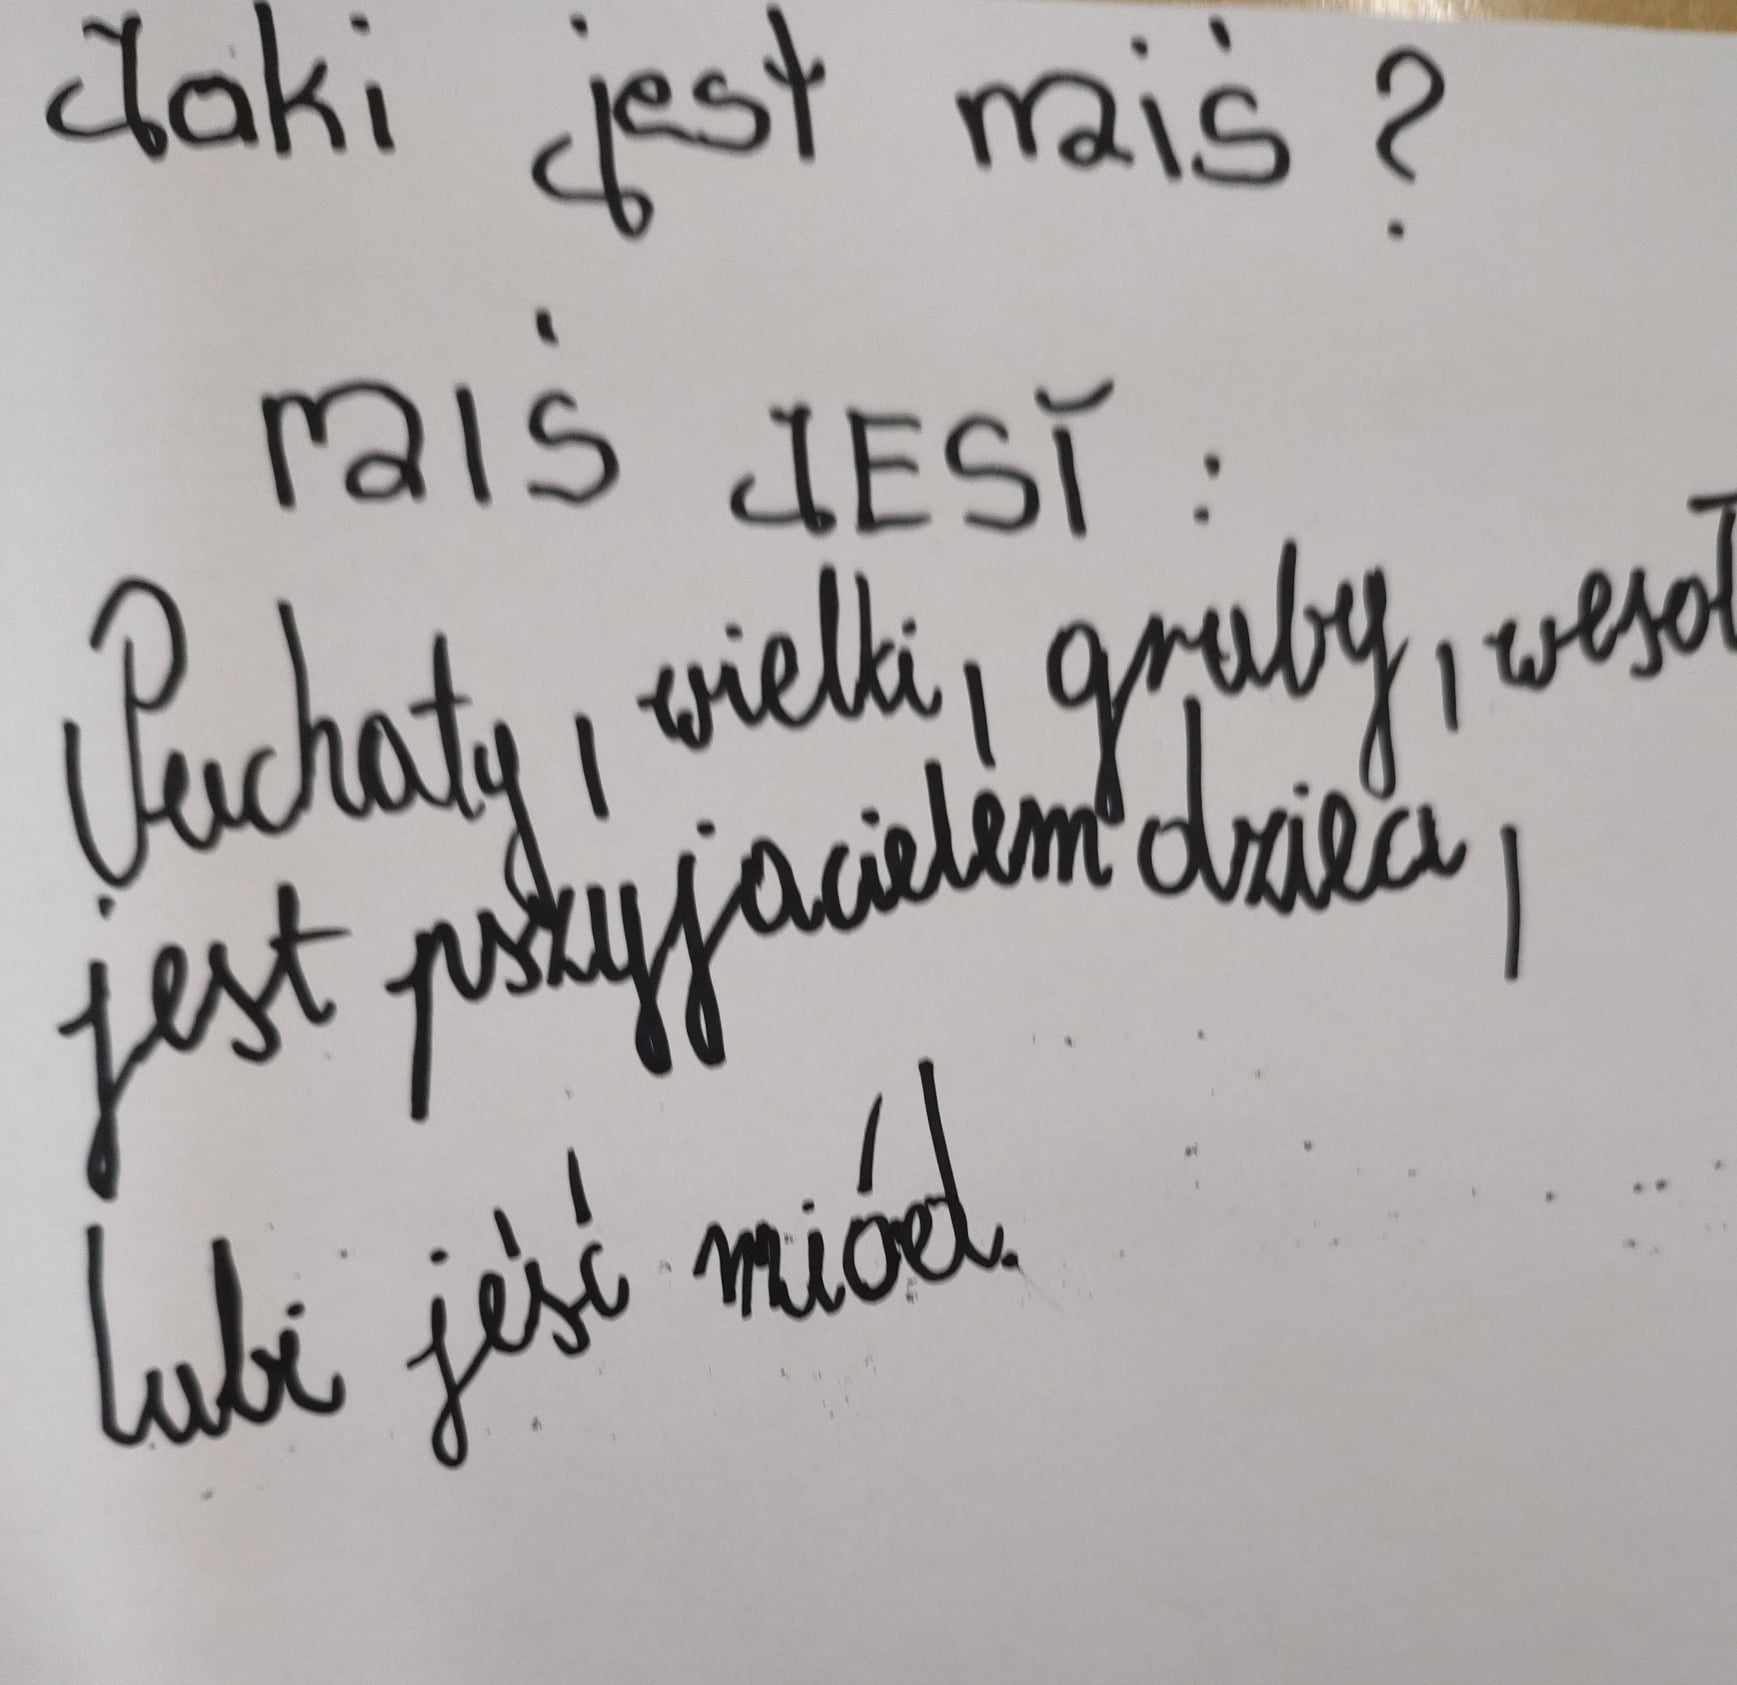 Jaki jest miś?
miś JEST:
Puchaty, wielki, gruby, wesoł
jest pszyjacielem dzieci,
lubi jeść miód.